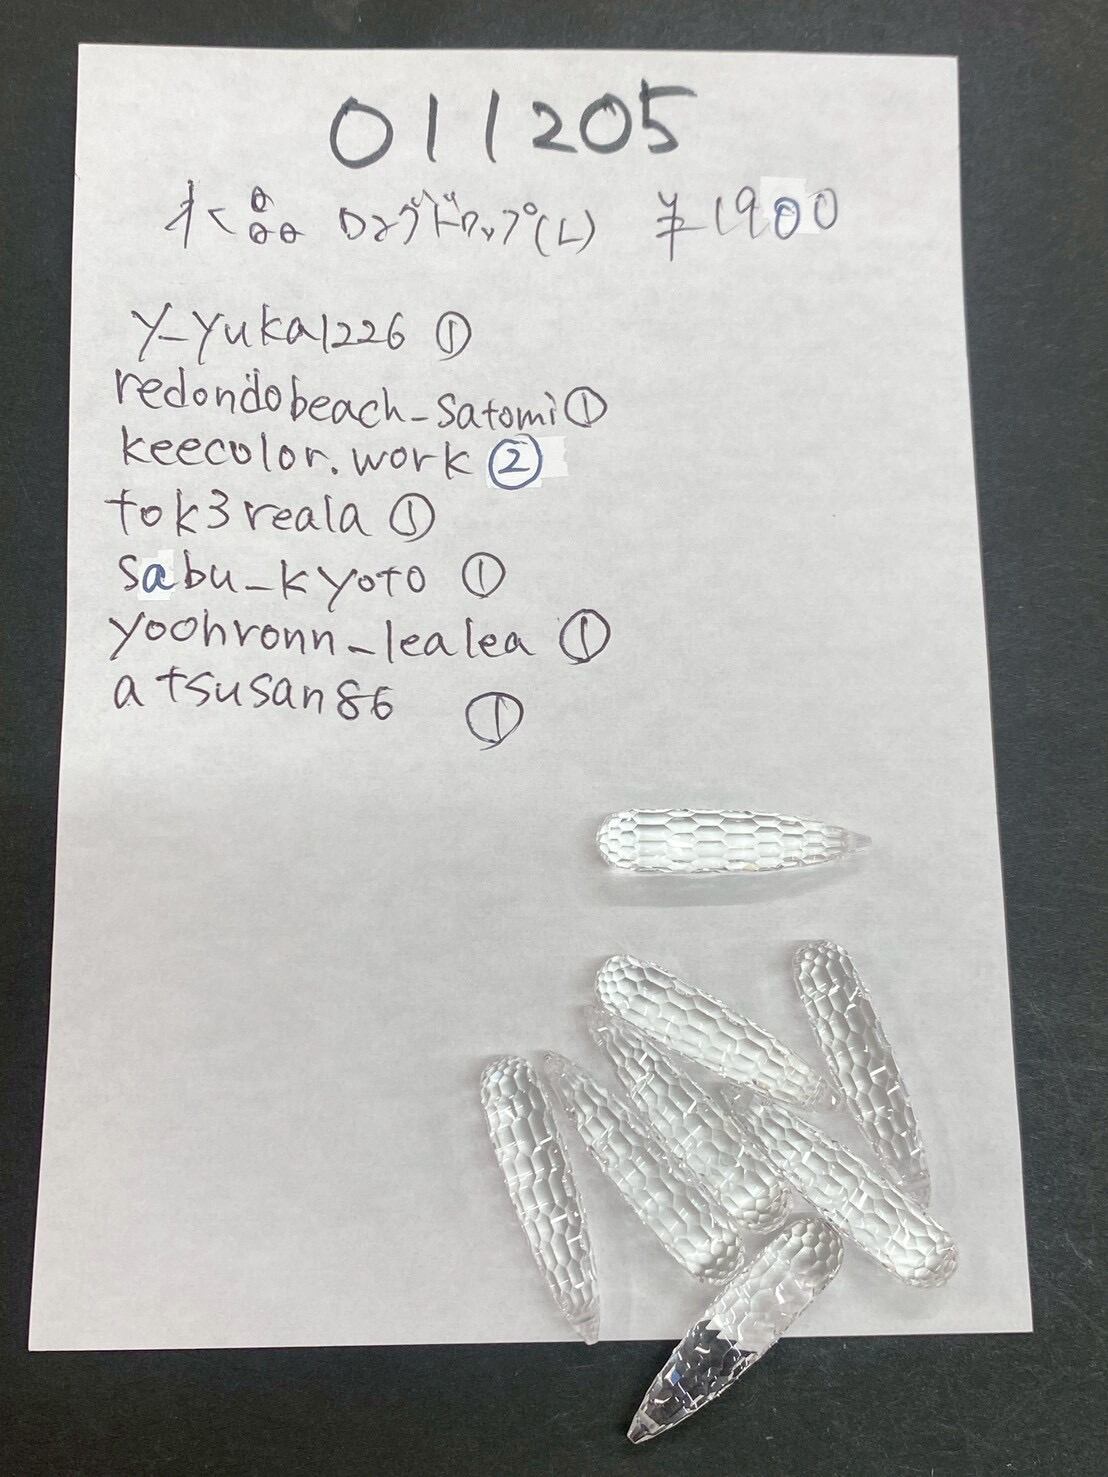 011205
水晶 ロングドロップ(L) ¥1900
y_yuka1226 ①
redondobeach_satomi ①
keecolor.work ②
tok3reala ①
sabu_kyoto ①
yoohronn_lealea ①
atsusan86 ①